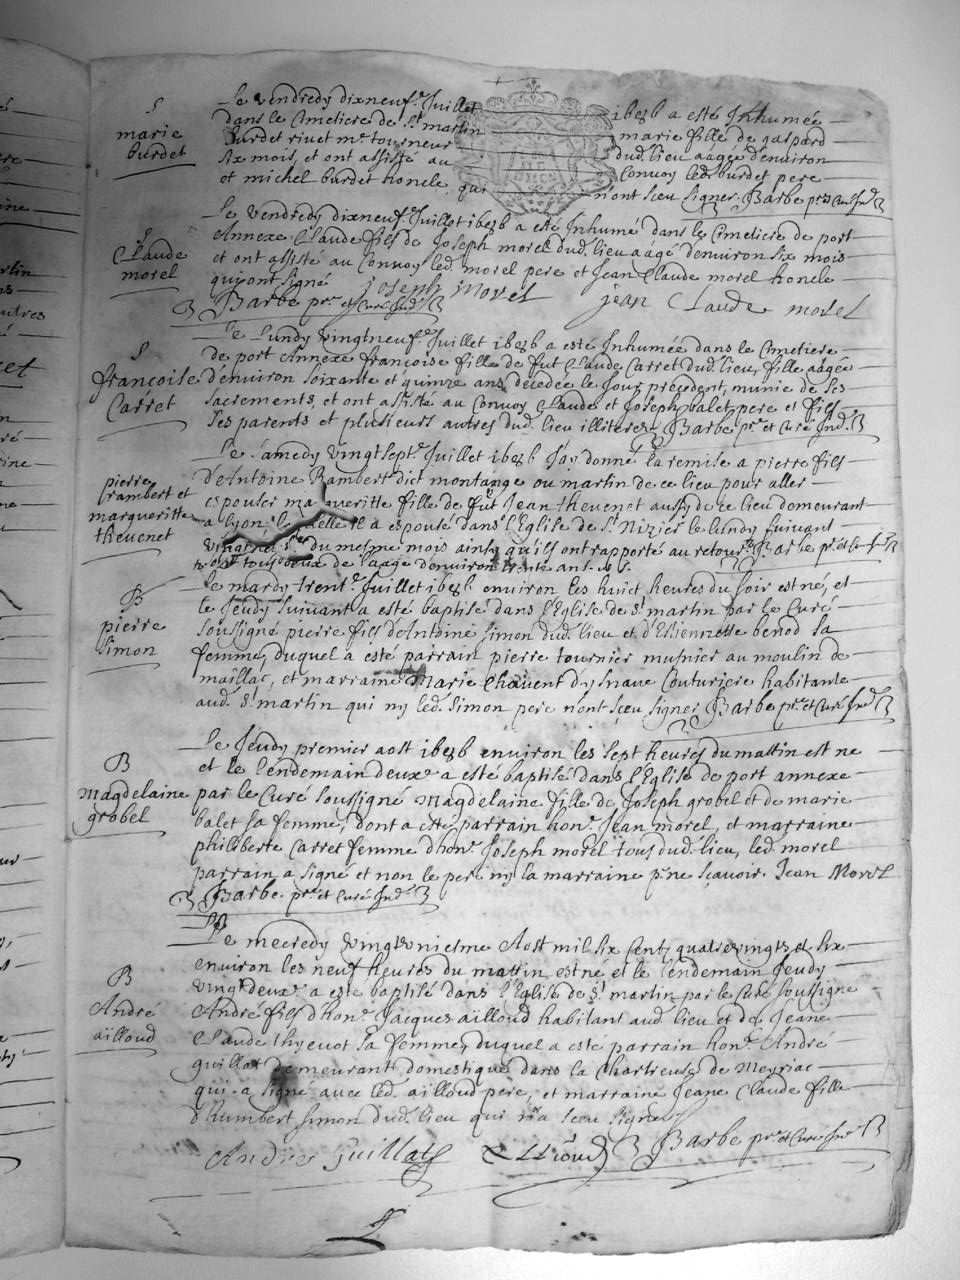 S
marie
burdet
Le vendredy dixneufe. Juillet 1686 a esté Inhumée
dans le Cimetiere de St. martin marie fille de gaspard
Burdet rivet me. tourneur dud. lieu aagée d'environ
six mois, et ont assisté au Convoy led. burdet pere
et michel burdet honcle qui n'ont sceu signer. Barbe ptre Curé Ind.
S
Claude
morel
Le vendredy dixneufe. Juillet 1686 a esté Inhumé dans le Cimetiere de port
Annexe Claude fils de Joseph morel dud. lieu aagé d'environ six mois
et ont assisté au Convoy led. morel pere et Jean Claude morel honcle
qui ont signé Joseph Morel jean Claude morel
Barbe pre. et Curé Ind.
S
francoise
Carret
Le Lundy vingtneufe. Juillet 1686 a esté Inhumée dans le Cimetiere
de port Annexe francoise fille de fut Claude Carret dud. lieu, fille aagée
d'environ soixante et quinze ans, decedée le Jour precedent, munie de ses
sacrements, et ont assisté au Convoy Claude et Joseph balet pere et fils
ses parents et plusieurs autres dud. lieu illiteres Barbe pre. et Curé Ind.
pierre
rambert et
margueritte
theuenet
Le samedy vingt sept. Juillet 1686 Jay donné la remise a pierre fils
d'Antoine Rambert dict montange ou martin de ce lieu pour aller
espouser margueritte fille de fut Jean theuenet aussy de ce lieu demeurant
a lyon laquelle il a espousé dans l'Eglise de St. Nizier le lundy suivant
du mesme mois ainsy qu'ils ont rapporté au retour. Barbe pre. et
tous deux de l'aage d'environ trente ans.
B
pierre
simon
Le mardy trente. Juillet 1686 environ les huict heures du soir est né, et
le Jeudy suivant a esté baptisé dans l'Eglise de St. martin par le Curé
soussigné pierre fils d'Antoine simon dud. lieu et d'Estiennette benod sa
femme, duquel a esté parrain pierre tournier musnier au moulin de
maillac, et marraine Marie Chauent d'ysnaue Couturiere habitante
aud. St. martin qui ny led. Simon pere n'ont sceu signer Barbe pre. et Curé Ind.
B
Magdelaine
grobel
Le Jeudy premier aost 1686 environ les sept heures du mattin est ne
et le l'endemain deuxe. a esté baptisé dans l'Eglise de port annexe
par le Curé soussigné Magdelaine fille de Joseph grobel et de marie
balet sa femme, dont a esté parrain hone. Jean morel, et marraine
philiberte Carret femme d'hone. Joseph morel tous dud. lieu, led. morel
parrain a signé et non le pere ny la marraine pr ne scavoir. Jean Morel
Barbe pre. et Curé Ind.
B
André
ailloud
Le mecredy vingtvniesme Aost mil six Cents quatrevingts et six
environ les neuf heures du mattin est né et le l'endemain Jeudy
vingt deuxe. a esté baptisé dans l'Eglise de St. martin par le Curé soussigné
André fils d'hone. Jacques ailloud habitant aud. lieu et de Jeane
Claude thyeuot sa femme, duquel a esté parrain hone. André
guillat demeurant domestique dans la Chartreuse de Meyriac
qui a signé avec led. ailloud pere, et marraine Jeane Claude fille
d'humbert Simon dud. lieu qui n'a sceu signer
Andre juillat Ailloud Barbe pre. et Curé Ind.